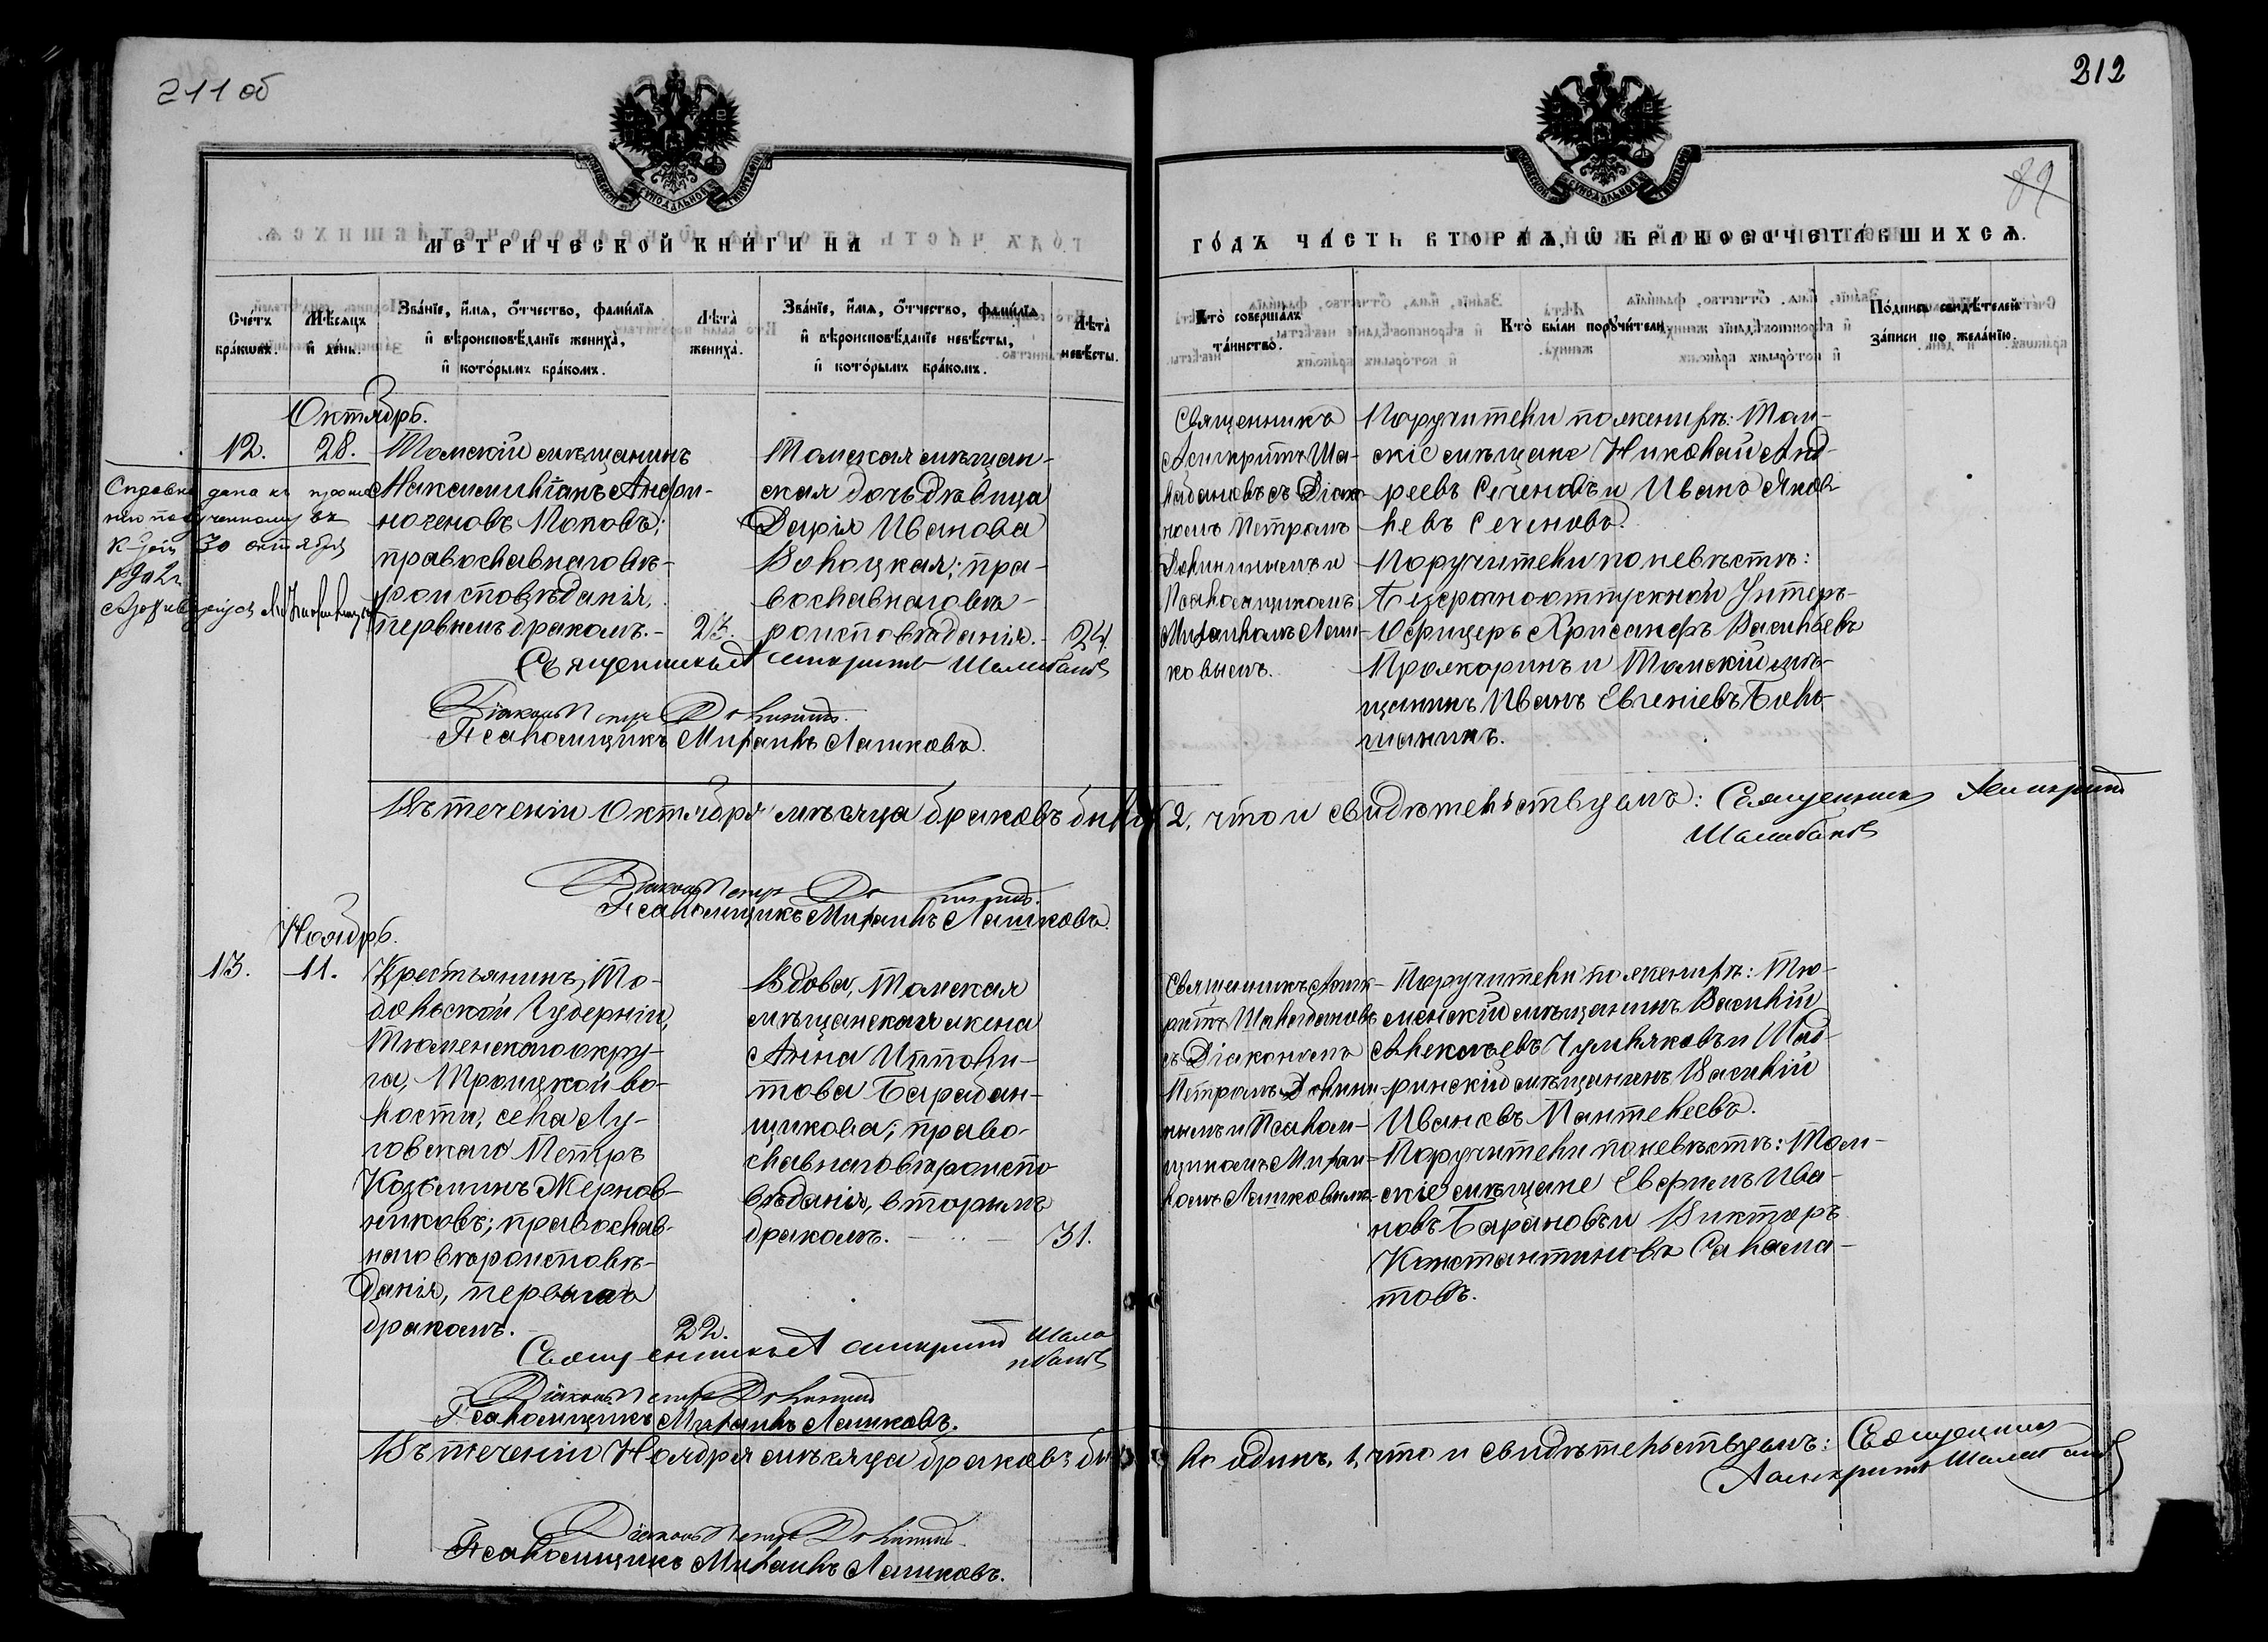 211 об
212
89
МЕТРИЧЕСКОЙ КНИГИ НА
ГОДЪ ЧАСТЬ ВТОРАЯ, Ѿ БРАКОСОЧЕТАВШИХСЯ.
Счетъ браковъ.
Мѣсяцъ и день.
Званіе, имя, отчество, фамилія
и вѣроисповѣданіе жениха,
и которымъ бракомъ.
Лѣта жениха.
Званіе, имя, отчество, фамилія
и вѣроисповѣданіе невѣсты,
и которымъ бракомъ.
Лѣта невѣсты.
Кто совершалъ таинство.
Кто были поручители.
Подпись свидѣтелей записи по желанію.
Октябрь.
12. 28.
Томскій мѣщанинъ
Максимиліанъ Анфи-
ногеновъ Поповъ;
православнаго вѣ-
роисповѣданія,
первымъ бракомъ.- 23.
Томская мѣщан-
ская дочь дѣвица
Дарія Иванова
Волоцкая; пра-
вославнаго вѣ-
роисповѣданія.- 24.
Справка дана къ
полученному въ
30 октября
Священникъ
Асинкритъ Ша-
лабановъ съ Діако-
номъ Петромъ
и
Псаломщикомъ
Михаиломъ Лаш-
ковымъ.
Поручители по женихѣ: Том-
скіе мѣщане Николай Анд-
реевъ Сеченовъ и Иванъ Яков-
левъ Сеченовъ.
Поручители по невѣстѣ:
Безсрочноотпускной Унтеръ-
Офицеръ Хрисанфъ Васильевъ
Прожоринъ и Томскій мѣ-
щанинъ Иванъ Евгеніевъ Боль-
шанинъ.
Священникъ Асинкритъ Шалабановъ
Діаконъ Петръ
Псаломщикъ Михаилъ Лашковъ.
Въ теченіи Октября мѣсяца браковъ было 2, что и свидѣтельствуемъ: Священникъ Асинкритъ
Шалабановъ
Діаконъ Петръ
Псаломщикъ Михаилъ Лашковъ.
Ноябрь.
13. 11.
Крестьянинъ, То-
больской Губерніи,
Тюменскаго окру-
га, Троицкой во-
лости, села Лу-
говскаго Петръ
Козьминъ Жернов-
никовъ; православ-
наго вѣроисповѣ-
данія, первымъ
бракомъ. 22.
Вдова, Томская
мѣщанская жена
Анна Ипполи-
това Барабан-
щикова; право-
славнаго вѣроиспо
вѣданія, вторымъ
бракомъ. 31.
Священникъ Асинк-
ритъ Шалабановъ
съ Діакономъ
Петромъ
и Псалом-
щикомъ Михаи-
ломъ Лашковымъ.
Поручители по женихѣ: Тю-
менскій мѣщанинъ Василій
Алексѣевъ Чумляковъ и Шад-
ринскій мѣщанинъ Василій
Ивановъ Пантелеевъ.
Поручители по невѣстѣ: Том-
скіе мѣщане Евфимъ Ива-
новъ Барановъ и Викторъ
Константиновъ Салама-
товъ.
Священникъ Асинкритъ Шалабановъ
Діаконъ Петръ
Псаломщикъ Михаилъ Лашковъ.
Въ теченіи Ноября мѣсяца браковъ было одинъ, 1, что и свидѣтельствуемъ: Священникъ
Асинкритъ Шалабановъ
Діаконъ Петръ
Псаломщикъ Михаилъ Лашковъ.